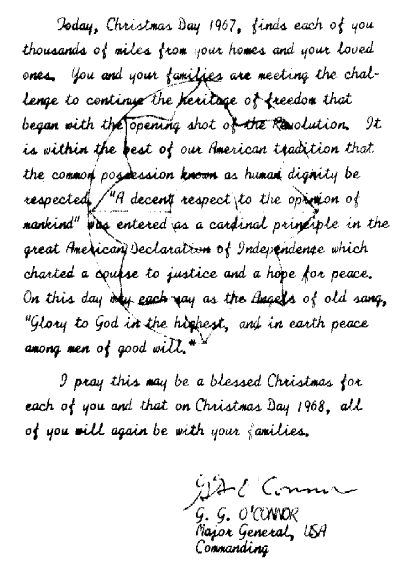 Today, Christmas Day 1967, finds each of you
thousands of miles from your homes and your loved
ones. You and your families are meeting the chal-
lenge to continue the heritage of freedom that
began with the opening shot of the Revolution. It
is within the best of our American tradition that
the common possession known as human dignity be
respected. "A decent respect to the opinion of
mankind" was entered as a cardinal principle in the
great American Declaration of Independence which
charted a course to justice and a hope for peace.
On this day may each say as the Angels of old sang,
"Glory to God in the highest, and in earth peace
among men of good will."
I pray this may be a blessed Christmas for
each of you and that on Christmas Day 1968, all
of you will again be with your families.
G G O'Connor
G. G. O'CONNOR
Major General, USA
Commanding